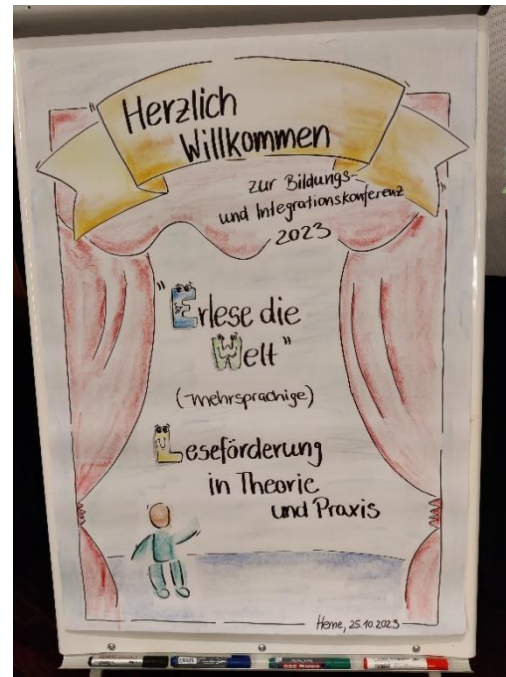 Herzlich
Willkommen
zur Bildungs-
und Integrationskonferenz
2023
"Erlese die
Welt"
(-mehrsprachige)
Leseförderung
in Theorie
und Praxis
Herne, 25.10.2023